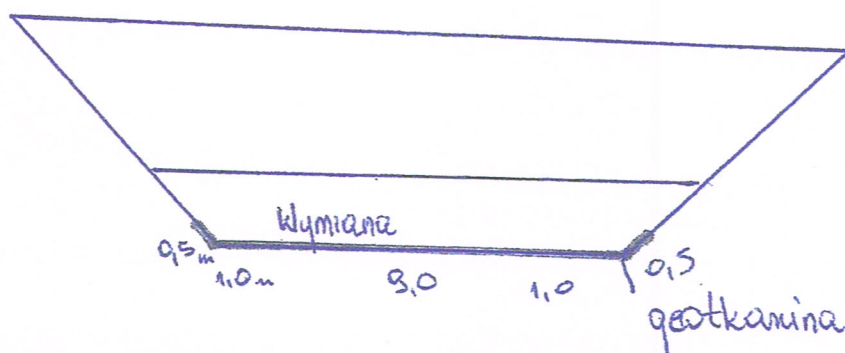 Wymiana
0,5m
1,0m 9,0 1,0
0,5
geotkanina